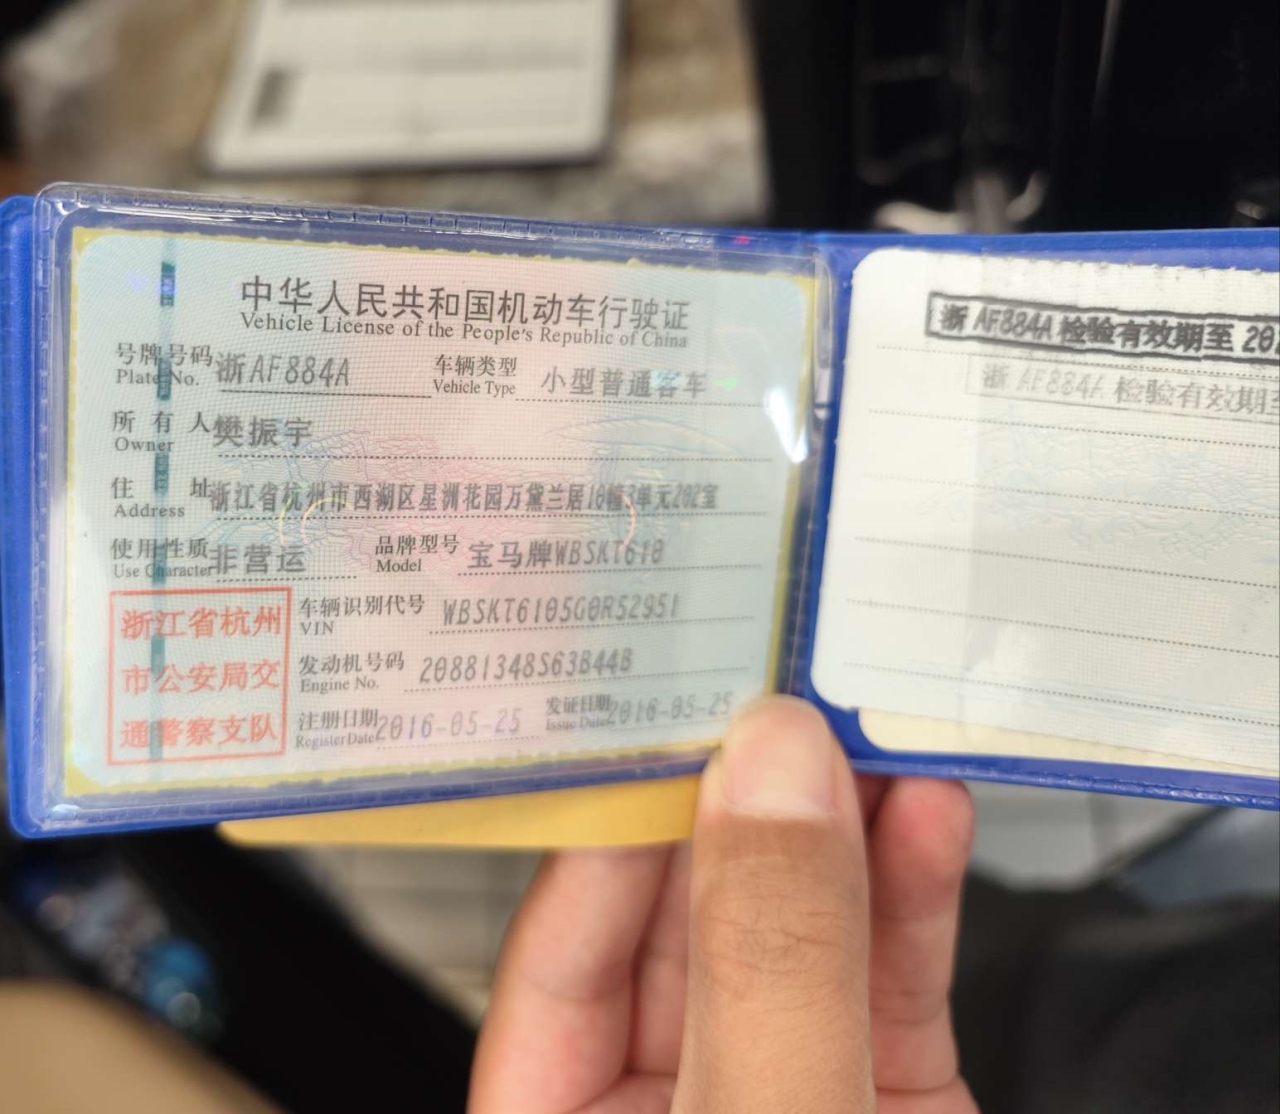 中华人民共和国机动车行驶证
Vehicle License of the People's Republic of China
号牌号码 浙AF884A 车辆类型 小型普通客车
Plate No. Vehicle Type
所有人 樊振宇
Owner
住址 浙江省杭州市西湖区星洲花园万黛兰居10幢3单元202室
Address
使用性质 非营运 品牌型号 宝马牌WBSKT610
Use Character Model
浙江省杭州
市公安局交
通警察支队
车辆识别代号 WBSKT6105G0R52951
VIN
发动机号码 20881348S63B44B
Engine No.
注册日期 2016-05-25 发证日期 2016-05-25
Register Date Issue Date
浙AF884A 检验有效期至 20
浙AF884A 检验有效期至